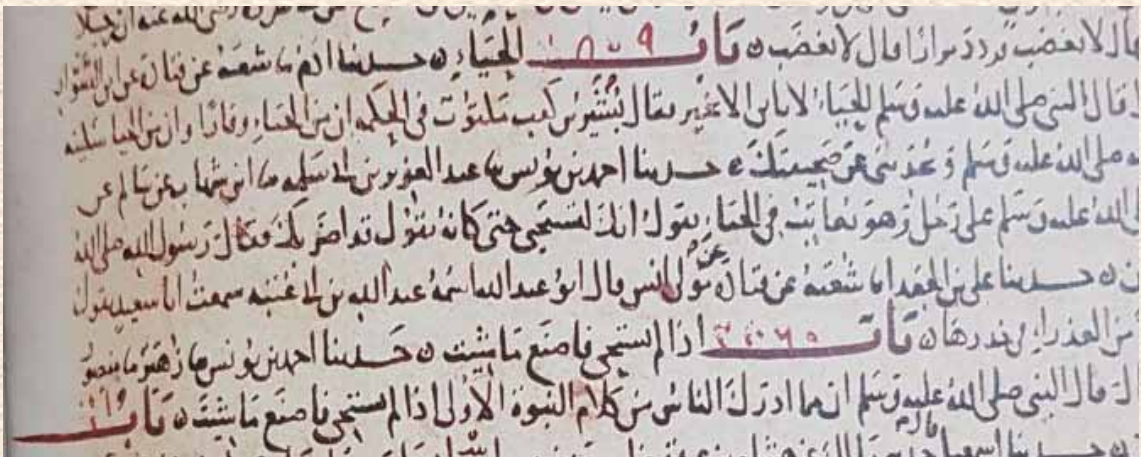 قال لا تغضب فردد مرارا قال لا تغضب ن باب الحياء ن حدثنا ادم ما شعبة عن قتادة عن ابي السوار
قال النبي صلى الله عليه وسلم الحياء لا ياتي الا بخير فقال بشير بن كعب مكتوب في الحكمة ان من الحياء وقارا وان من الحياء سكينة
صلى الله عليه وسلم وتحدثني عن صحيفتك حدثنا احمد بن يونس ما عبد العزيز بن ابي سلمه ما ابن شهاب عن سالم عن
صلى الله عليه وسلم على رجل وهو يعاتب في الحياء يقول انك لتستحيي حتى كانه يقول قد اضر بك فقال رسول الله صلى الله
ن حدثنا علي بن الجعد انا شعبة عن قتادة عن مولى انس قال ابو عبد الله اسمه عبد الله بن ابي عتبة سمعت ابا سعيد يقول
من العذراء في خدرها ن باب اذا لم تستحي فاصنع ما شئت ن حدثنا احمد بن يونس ما زهير ما منصور
قال النبي صلى الله عليه وسلم ان مما ادرك الناس من كلام النبوة الاولى اذا لم تستحي فاصنع ما شئت ن باب
حدثنا اسمعيل